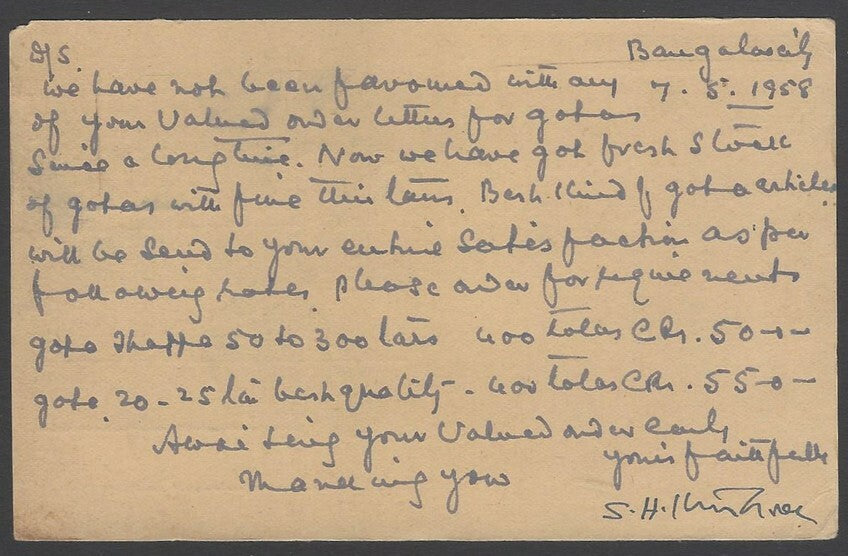 D/S.
Bangalorcity
7. 5. 1958
we have not been favoured with any
of your Valued order letters for gotas
Since a long time. Now we have got fresh Stock
of gotas with fine thin lars. Best Kind of gota articles
will be Send to your entire Satisfaction as per
following rates. Please order for requirements
gota 50 to 300 lars 400 tolas @ Rs. 50-0-
gota 20-25 lar best quality - 400 tolas @ Rs. 55-0-
Awaiting your Valued order early
Thanking you
yours faithfully
S. H.